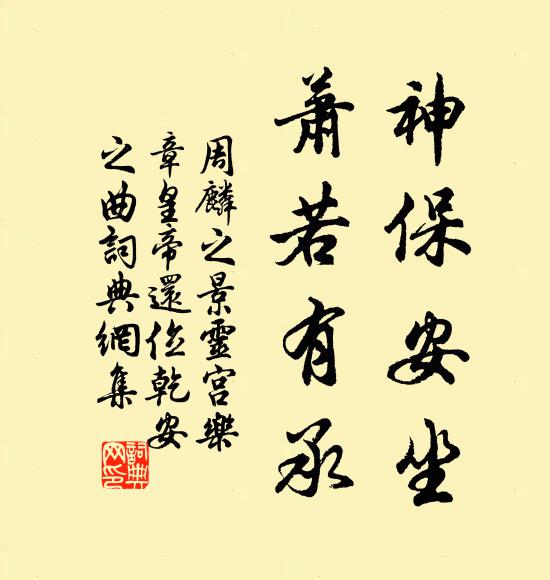 神保安坐
萧若有承
周麟之景靈宫樂
章皇帝還位乾安
之曲詞典網集
詞典网印